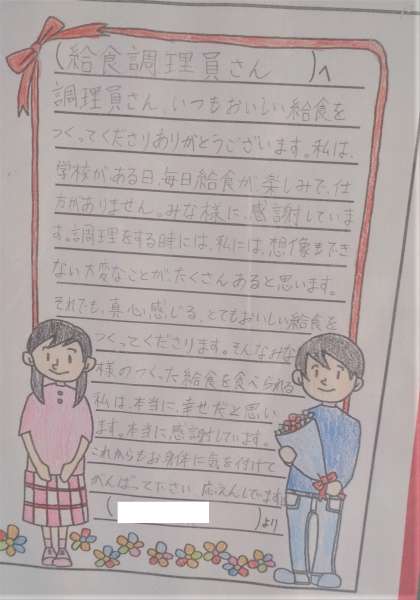 (給食調理員さん )へ
調理員さん、いつもおいしい給食を
つくってくださりありがとうございます。私は、
学校がある日、毎日給食が、楽しみで、仕
方がありません。みな様に、感謝していま
す。調理をする時には、私には、想像もでき
ない大変なことが、たくさんあると思います。
それでも、真心感じる、とてもおいしい給食を
つくってくださります。そんなみな
様のつくった給食を食べられる
私は、本当に、幸せだと思い
ます。本当に、感謝しています。
これからもお身体に気を付けて
がんばってださい 応えんしています
( )より